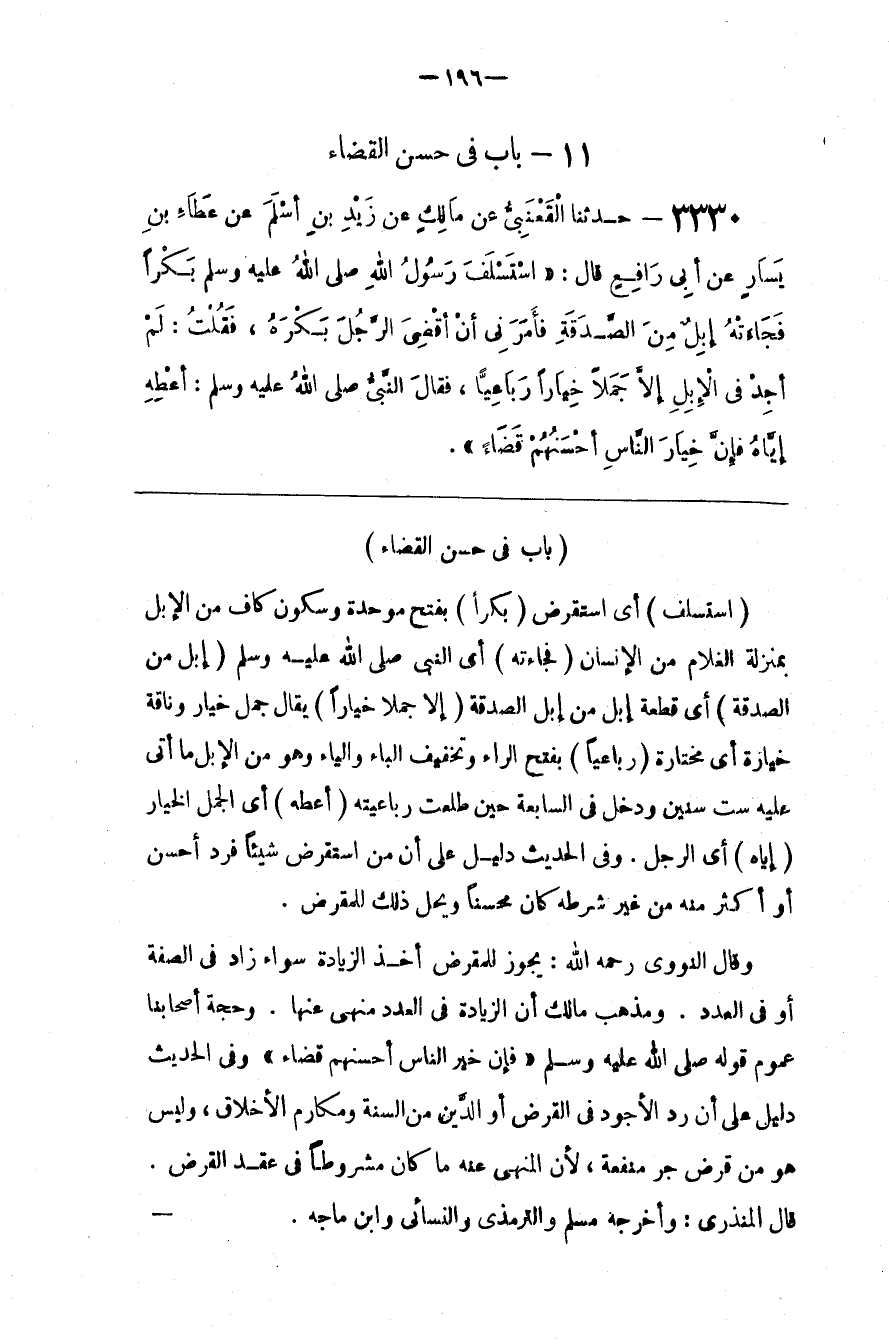 —١٩٦—
١١ — باب فى حسن القضاء
٣٣٣٠ — حـدثنا الْقَعْنَبِىُّ عن مَالِكٍ عن زَيْدِ بنِ أسْلَمَ عن عَطَاءِ بنِ
يَسَارٍ عن أبِى رَافِعٍ قال : « اسْتَسْلَفَ رَسُولُ اللهِ صلى اللهُ عليه وسلم بَكْراً
فَجَاءَتْهُ إبِلٌ مِنَ الصَّـدَقَةِ فأَمَرَنِى أنْ أقْضِىَ الرَّجُلَ بَكْرَهُ ، فَقُلْتُ : لَمْ
أجِدْ فى الْإبِلِ إلاَّ جَمَلاً خِيَاراً رَبَاعِيًّا ، فقالَ النَّبىُّ صلى اللهُ عليه وسلم : أعْطِهِ
إيَّاهُ فإنَّ خِيَارَ النَّاسِ أحْسَنُهُمْ قَضَاءً » .
( باب فى حسن القضاء )
( استسلف ) أى استقرض ( بكراً ) بفتح موحدة وسكون كاف من الإبل
بمنزلة الغلام من الإنسان ( فجاءته ) أى النبى صلى الله عليـه وسلم ( إبل من
الصدقة ) أى قطعة إبل من إبل الصدقة ( إلا جملا خياراً ) يقال جمل خيار وناقة
خيارة أى مختارة ( رباعياً ) بفتح الراء وتخفيف الباء والياء وهو من الإبل ما أتى
عليه ست سنين ودخل فى السابعة حين طلعت رباعيته ( أعطه ) أى الجمل الخيار
( إياه ) أى الرجل . وفى الحديث دليـل على أن من استقرض شيئاً فرد أحسن
أو أكثر منه من غير شرطه كان محسناً ويحل ذلك للمقرض .
وقال النووى رحمه الله : يجوز للمقرض أخـذ الزيادة سواء زاد فى الصفة
أو فى العدد . ومذهب مالك أن الزيادة فى العدد منهى عنها . وحجة أصحابنا
عموم قوله صلى الله عليه وسـلم « فإن خير الناس أحسنهم قضاء » وفى الحديث
دليل على أن رد الأجود فى القرض أو الدَّين من السنة ومكارم الأخلاق ، وليس
هو من قرض جر منفعة ، لأن المنهى عنه ما كان مشروطاً فى عقـد القرض .
قال المنذرى : وأخرجه مسلم والترمذى والنسائى وابن ماجه . —